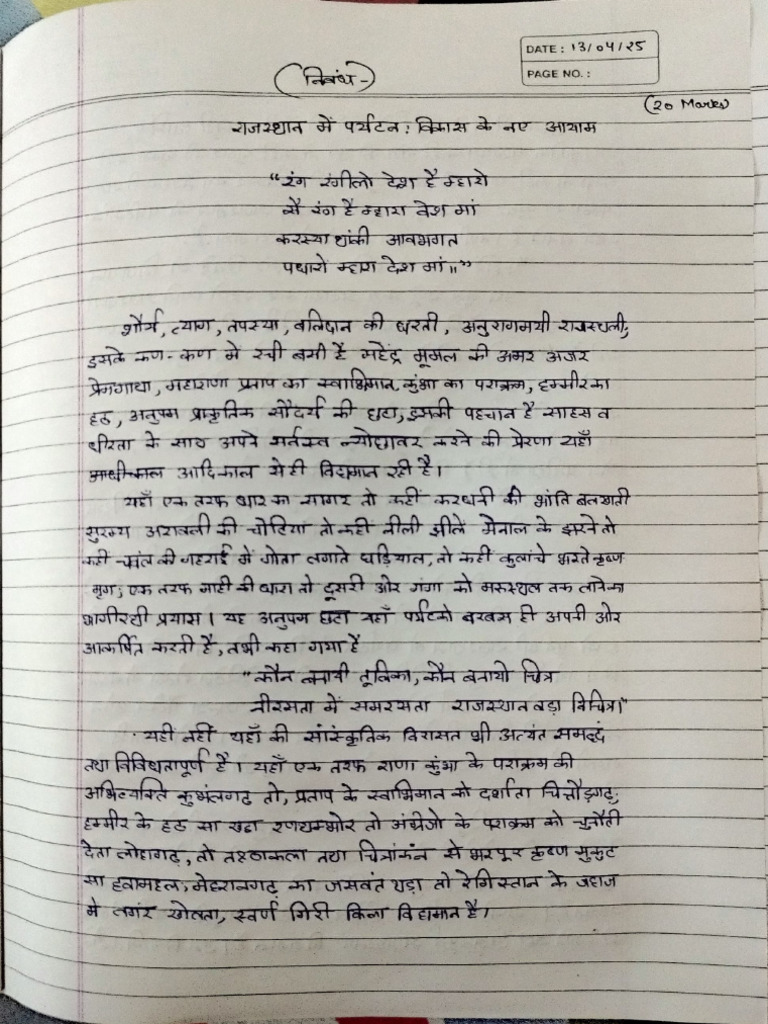 DATE : 13/04/25
PAGE NO. :
(निबंध-)
(20 Marks)
राजस्थान में पर्यटन : विकास के नए आयाम
"रंग रंगीलो देश है म्हारो
सै रंग है म्हारा देश मां
करस्या थांकी आवभगत
पधारो म्हारा देश मां॥"
शौर्य, त्याग, तपस्या, बलिदान की धरती, अनुरागमयी राजस्थली;
इसके कण-कण में रची बसी है महेंद्र मूमल की अमर अजर
प्रेमगाथा, महाराणा प्रताप का स्वाभिमान, कुंभा का पराक्रम, हम्मीर का
हठ, अनुपम प्राकृतिक सौंदर्य की छटा, इसकी पहचान है साहस व
धीरता के साथ अपने सर्वस्व न्योछावर करने की प्रेरणा यहाँ
आदिकाल से ही विद्यमान रही है।
यहाँ एक तरफ थार का सागर तो कहीं करधनी की भांति बलखाती
सुरम्य अरावली की चोटियां तो कहीं नीली झीलें मेनाल के झरने तो
कहीं चंबल की गहराई में गोता लगाते घड़ियाल, तो कहीं कुलांचे भरते कृष्ण
मृग; एक तरफ माही की धारा तो दूसरी ओर गंगा को मरुस्थल तक लाने का
भागीरथी प्रयास। यह अनुपम छटा यहाँ पर्यटको बरबस ही अपनी ओर
आकर्षित करती है, तभी कहा गया है
"कौन बनायी तूलिका, कौन बनायो चित्र
नीरसता में समरसता राजस्थान बड़ा विचित्र।"
यही नहीं यहाँ की सांस्कृतिक विरासत भी अत्यंत समृद्ध
तथा विविधतापूर्ण है। यहाँ एक तरफ राणा कुंभा के पराक्रम की
अभिव्यक्ति कुभंलगढ़ तो, प्रताप के स्वाभिमान को दर्शाता चित्तौड़गढ़;
हम्मीर के हठ सा खड़ा रणथम्भोर तो अंग्रेजो के पराक्रम को चुनौती
देता लोहागढ़, तो तथा चित्रांकंन से भरपूर कृष्ण मुकुट
सा हवामहल; मेहरानगढ़ का जसवंत थड़ा तो रेगिस्तान के जहाज
मे लगंर खोलता, स्वर्ण गिरी किला विद्यमान है।